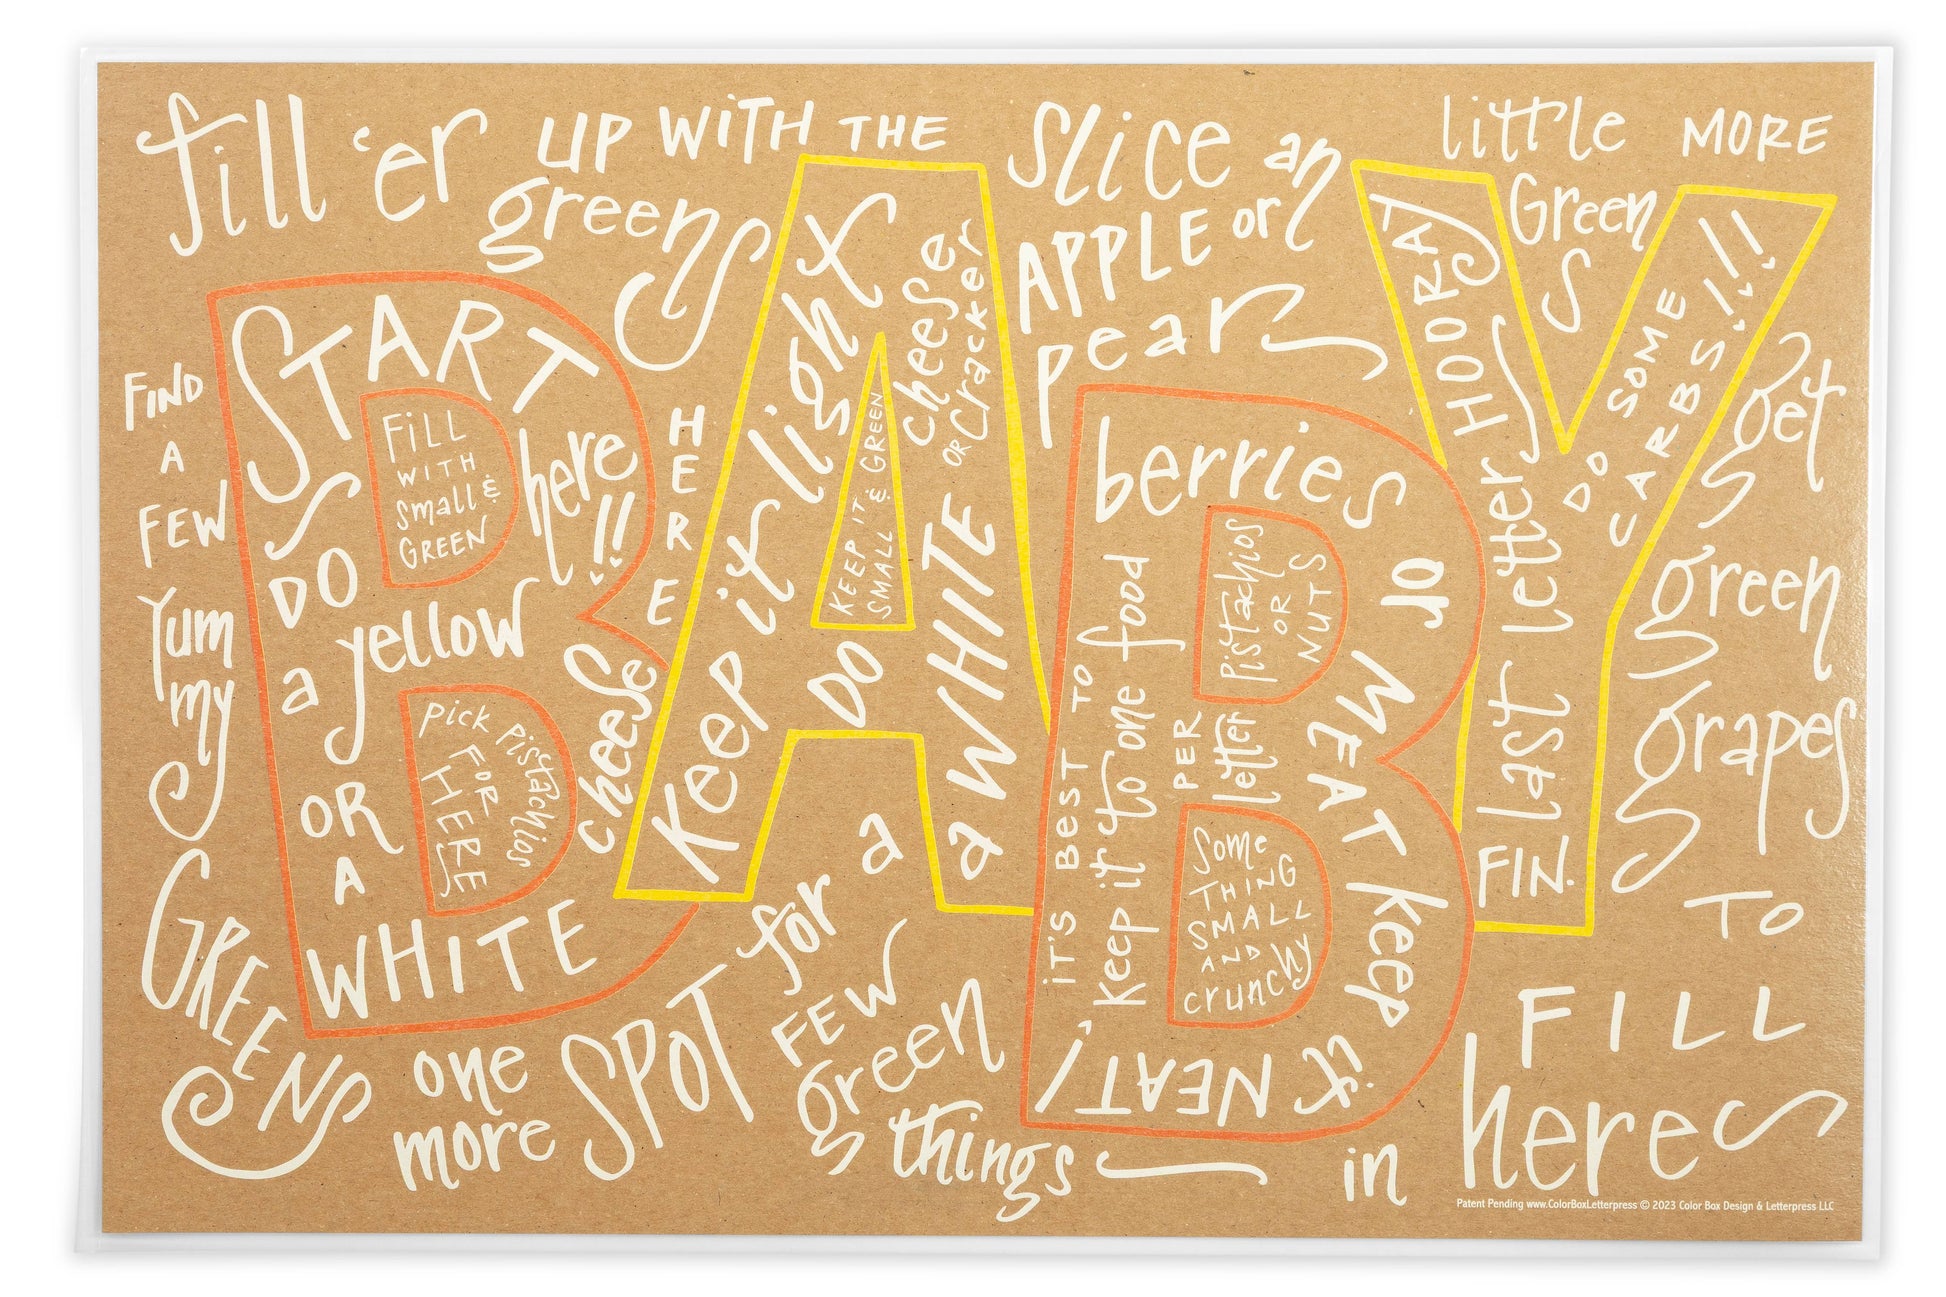 fill 'er
UP WITH THE
greens
Slice an
APPLE or
pears
little MORE
Green
S
FIND
A
FEW
Yum
my
GREENS
START
here!!
FILL
WITH
small &
GREEN
DO
a yellow
OR
A
WHITE
cheese
PICK PISTACHIOS
FOR
HERE
HERE
Keep it light
KEEP IT
SMALL & GREEN
DO
a WHITE
cheese
OR cracker
berries or MEAT keep it NEAT!
IT'S BEST TO
keep it to one food
PER
letter
PISTACHIOS
OR
NUTS
Some
THING
SMALL
AND
crunchy
HOORAY
last letter
DO SOME
CARBS!!!
FIN.
get
green
grapes
TO
FILL
in here
one
more SPOT
for a
FEW
green
things
Patent Pending www.ColorBoxLetterpress © 2023 Color Box Design & Letterpress LLC